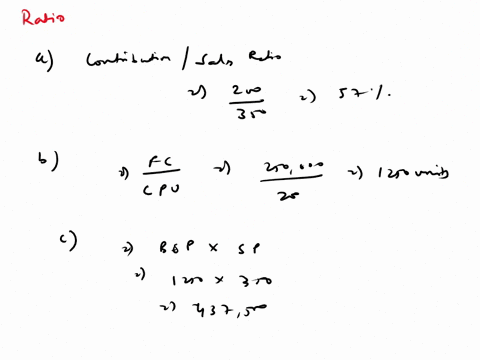 Ratio
a) Contribution / Sales Ratio
=) 200/350 =) 57%.
b) =) FC/CPU =) 250,000/20 =) 1250 units
c) =) BEP x SP
=) 1250 x 350
=) 437,500